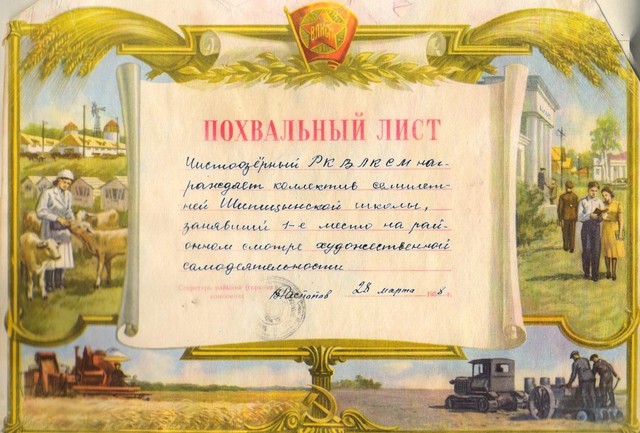 ВЛКСМ
ПОХВАЛЬНЫЙ ЛИСТ
Чистоозёрный РК ВЛКСМ наг-
раждает коллектив семилет-
ней Шипицынской школы,
занявший 1-е место на рай-
онном смотре художественной
самодеятельности
Секретарь райкома (горкома)
комсомола
28 марта 1958 г.